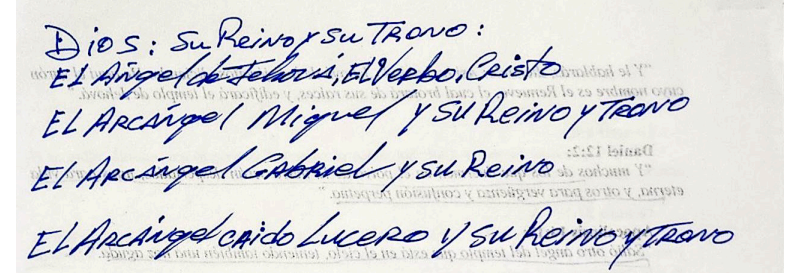 Dios: Su Reino y su Trono:
EL Ángel de Jehová, El Verbo, Cristo
EL Arcángel Miguel y su Reino y Trono
EL Arcángel Gabriel y su Reino
EL Arcángel caido Lucero y su Reino y Trono